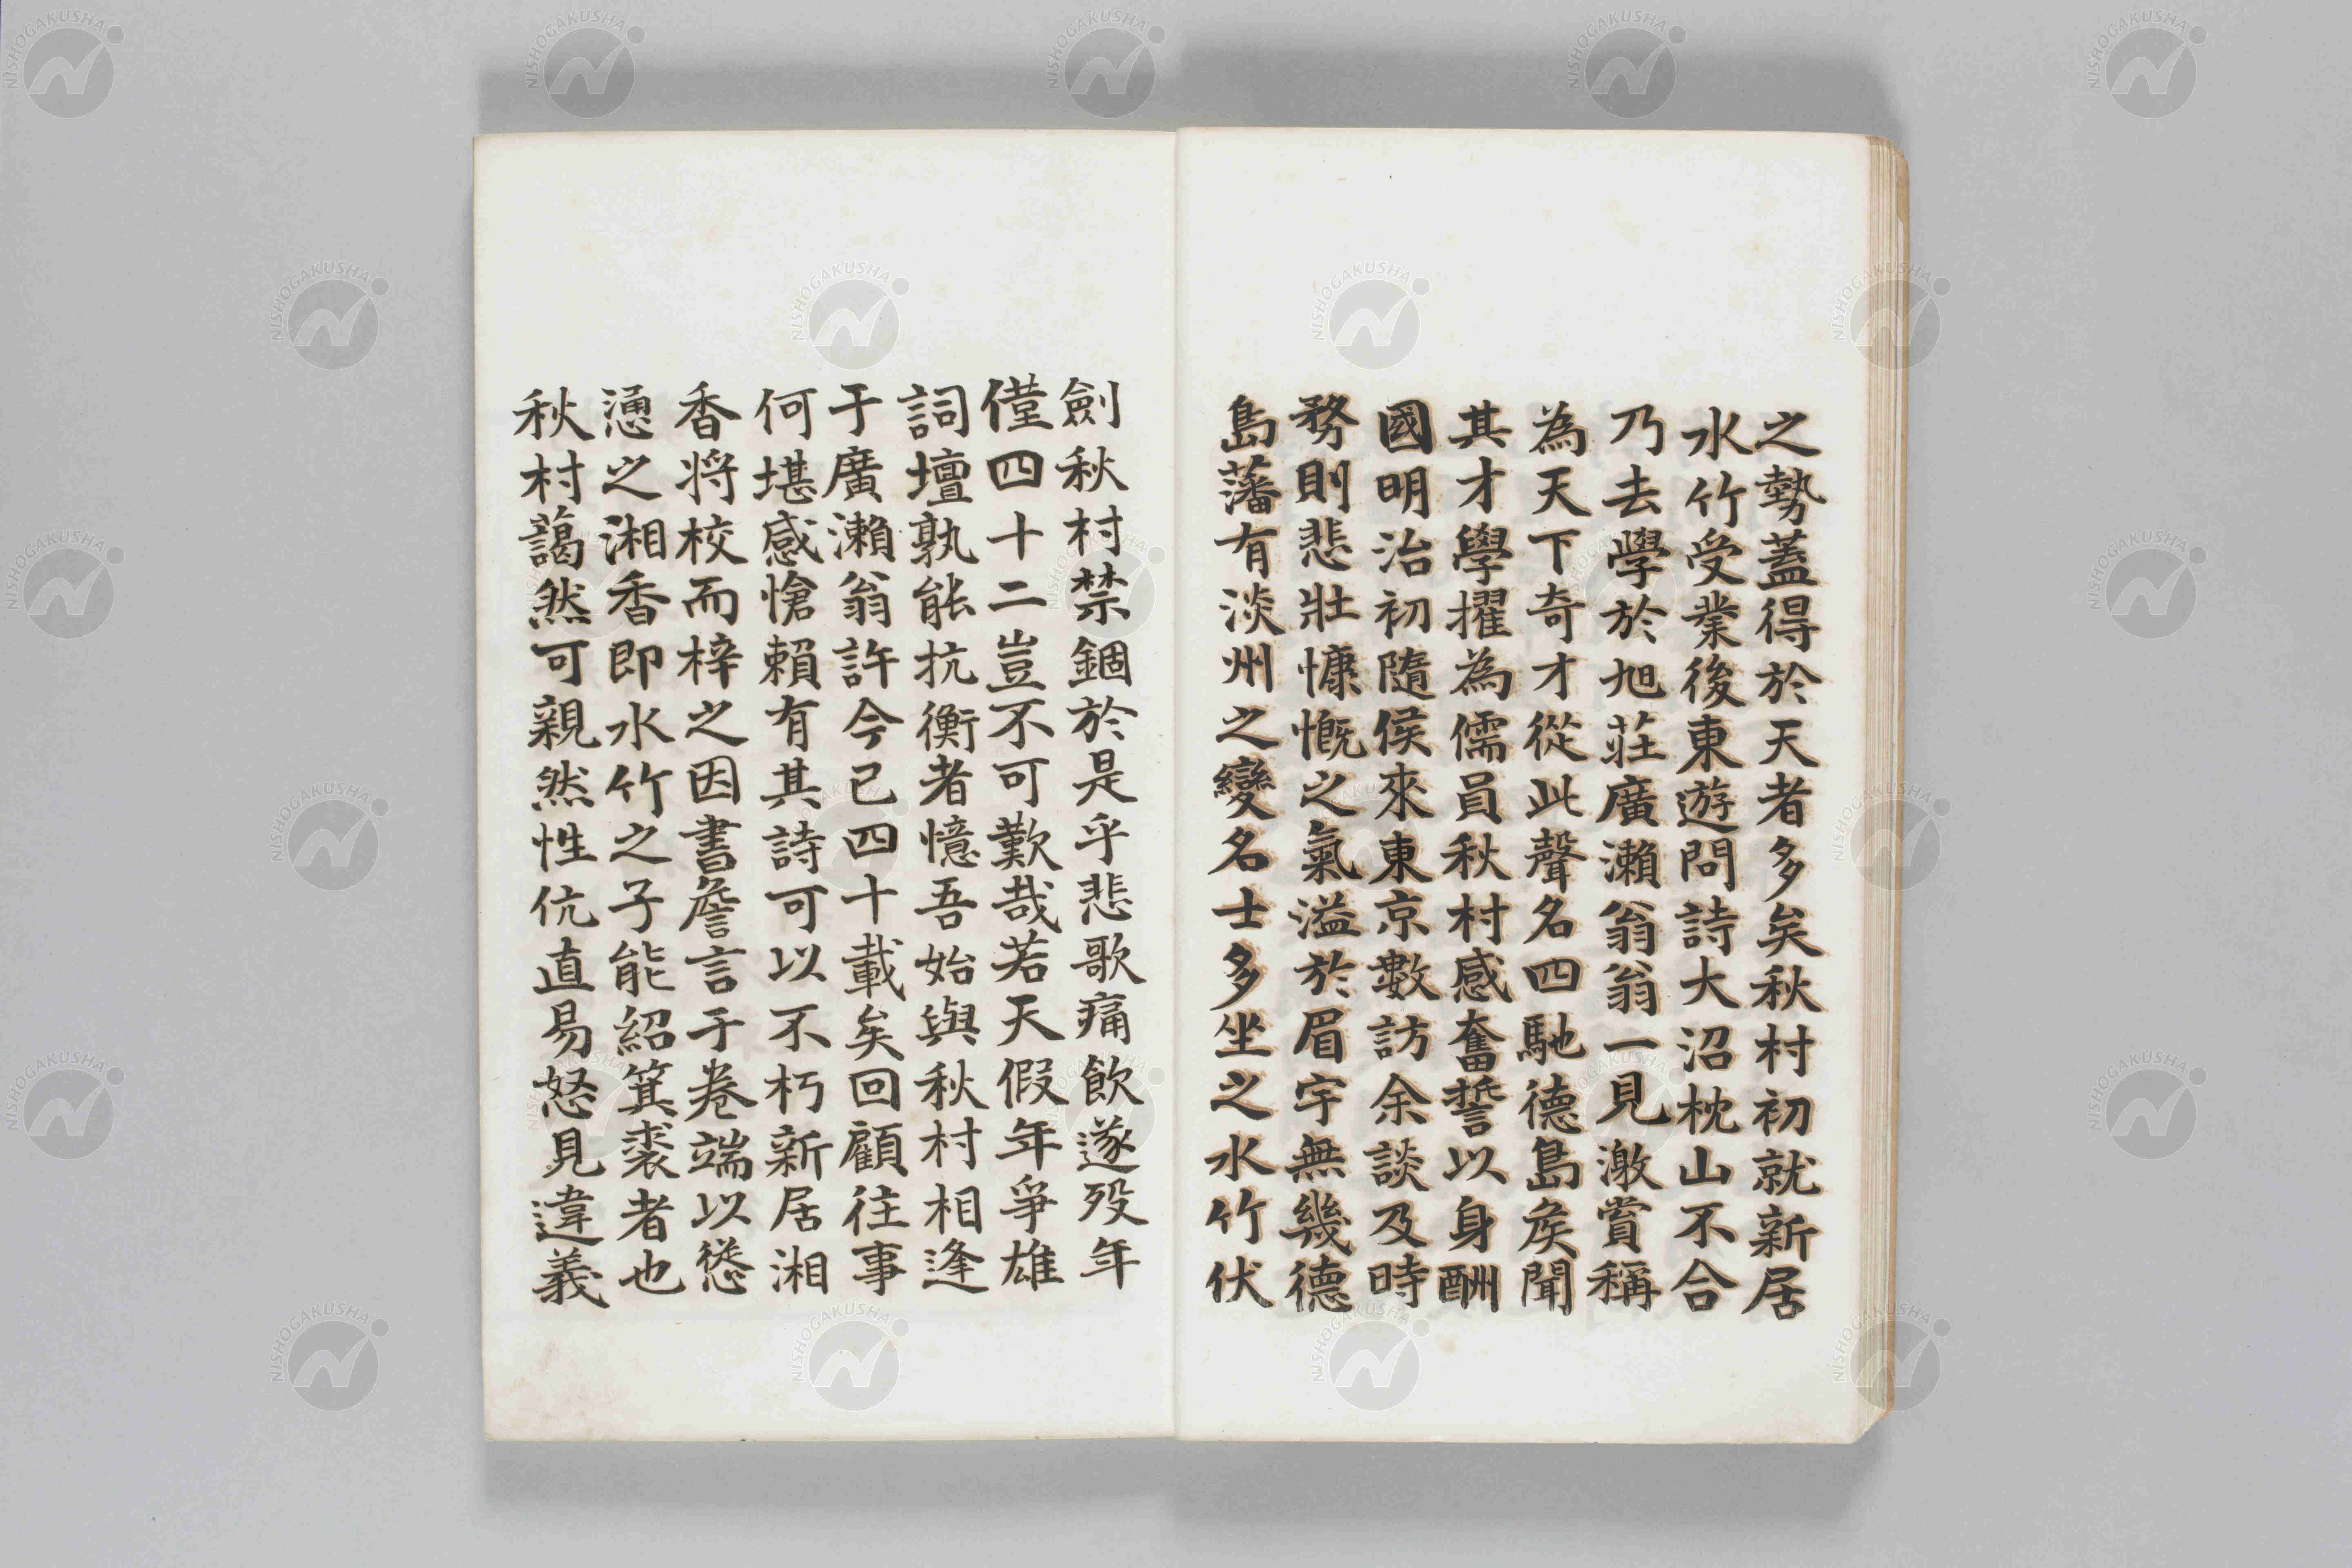 之勢蓋得於天者多矣秋村初就新居
水竹受業後東遊問詩大沼枕山不合
乃去學於旭莊廣瀨翁翁一見激賞稱
為天下奇才從此聲名四馳德島矦聞
其才學擢為儒員秋村感奮誓以身酬
國明治初隨侯來東京數訪余談及時
務則悲壯慷慨之氣溢於眉宇無幾德
島藩有淡州之變名士多坐之水竹伏
劍秋村禁錮於是乎悲歌痛飲遂歿年
僅四十二豈不可歎哉若天假年爭雄
詞壇孰能抗衡者憶吾始與秋村相逢
于廣瀨翁許今已四十載矣回顧往事
何堪感愴賴有其詩可以不朽新居湘
香将校而梓之因書詹言于卷端以慫
慂之湘香即水竹之子能紹箕裘者也
秋村藹然可親然性伉直易怒見違義
NISHOGAKUSHA